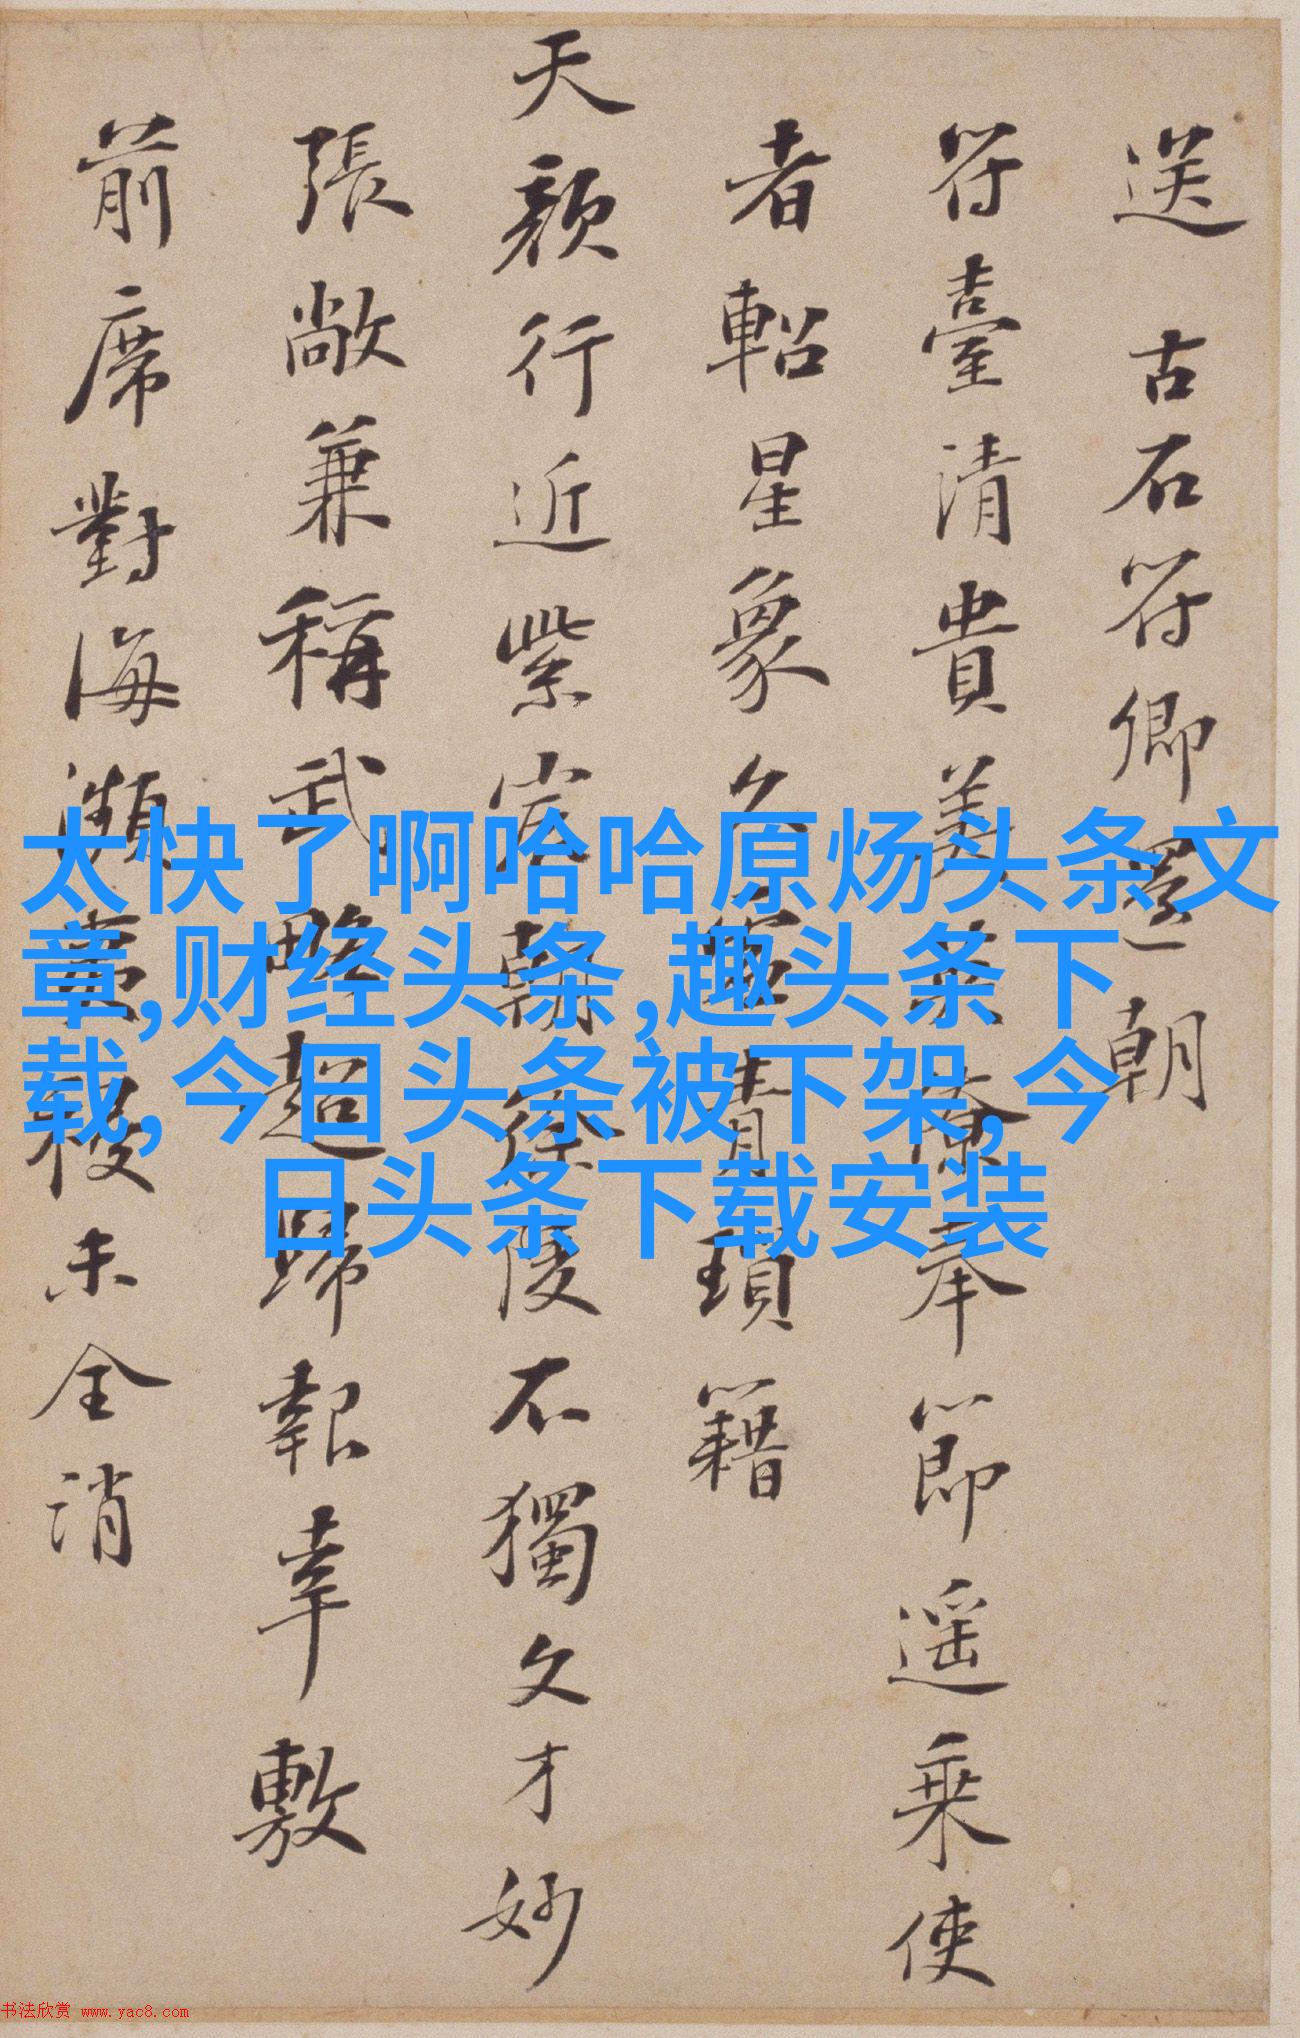 送 古石符卿還朝
符臺清貴美英僚奉節遥乘使
者軺星象久青瑣籍
天顔行近紫宸朝徐陵不獨文才妙
張敞兼稱武略超歸報幸敷
前席對海瀕祲未全消
太快了啊哈哈原炀头条文
章,财经头条,趣头条下
载,今日头条被下架,今
日头条下载安装
书法欣赏 www.yac8.com